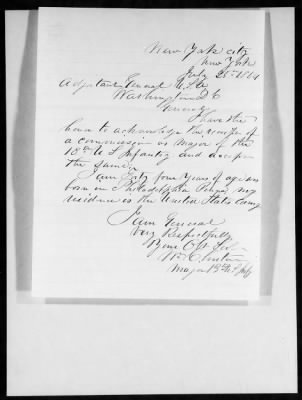 New York City
New York
July 25th 1864
Adjutant General U.S.A.
Washington D.C.
General
I have the
honor to acknowledge the receipt of
a commission as Major of the
18th U S Infantry and accept
the same.
I am Forty four years of age was
born in Philadelphia Penna, my
residence is the United States Army
I am General
Very Respectfully
Your Obt Svt
Major 18th U S Infy